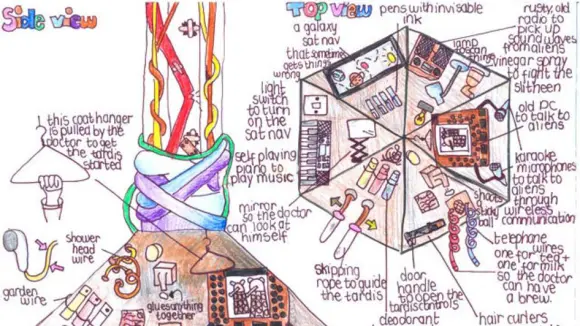 Side view
Top view
this coat hanger
is pulled by the
doctor to get
the tardis
started
shower
head
wire
garden
wire
glues anything
together
a galaxy
sat nav
that sometimes
gets things
wrong
light
switch
to turn
on the
sat nav
self playing
piano to
play music
mirror
so the doctor
can look at
himself
skipping
rope to guide
the tardis
pens with invisible
ink
lamp
to scan
things
rusty, old
radio to
pick up
sound waves
from aliens
vinegar spray
to fight the
slitheen
old PC
to talk to
aliens
karaoke
microphones
to talk to
aliens
through
wireless
communication
shoots
sticky
ball
telephone
wires
one for tea +
one for milk
so the doctor
can have
a brew.
door
handle
to open the
tardis controls
deodorant
hair curlers